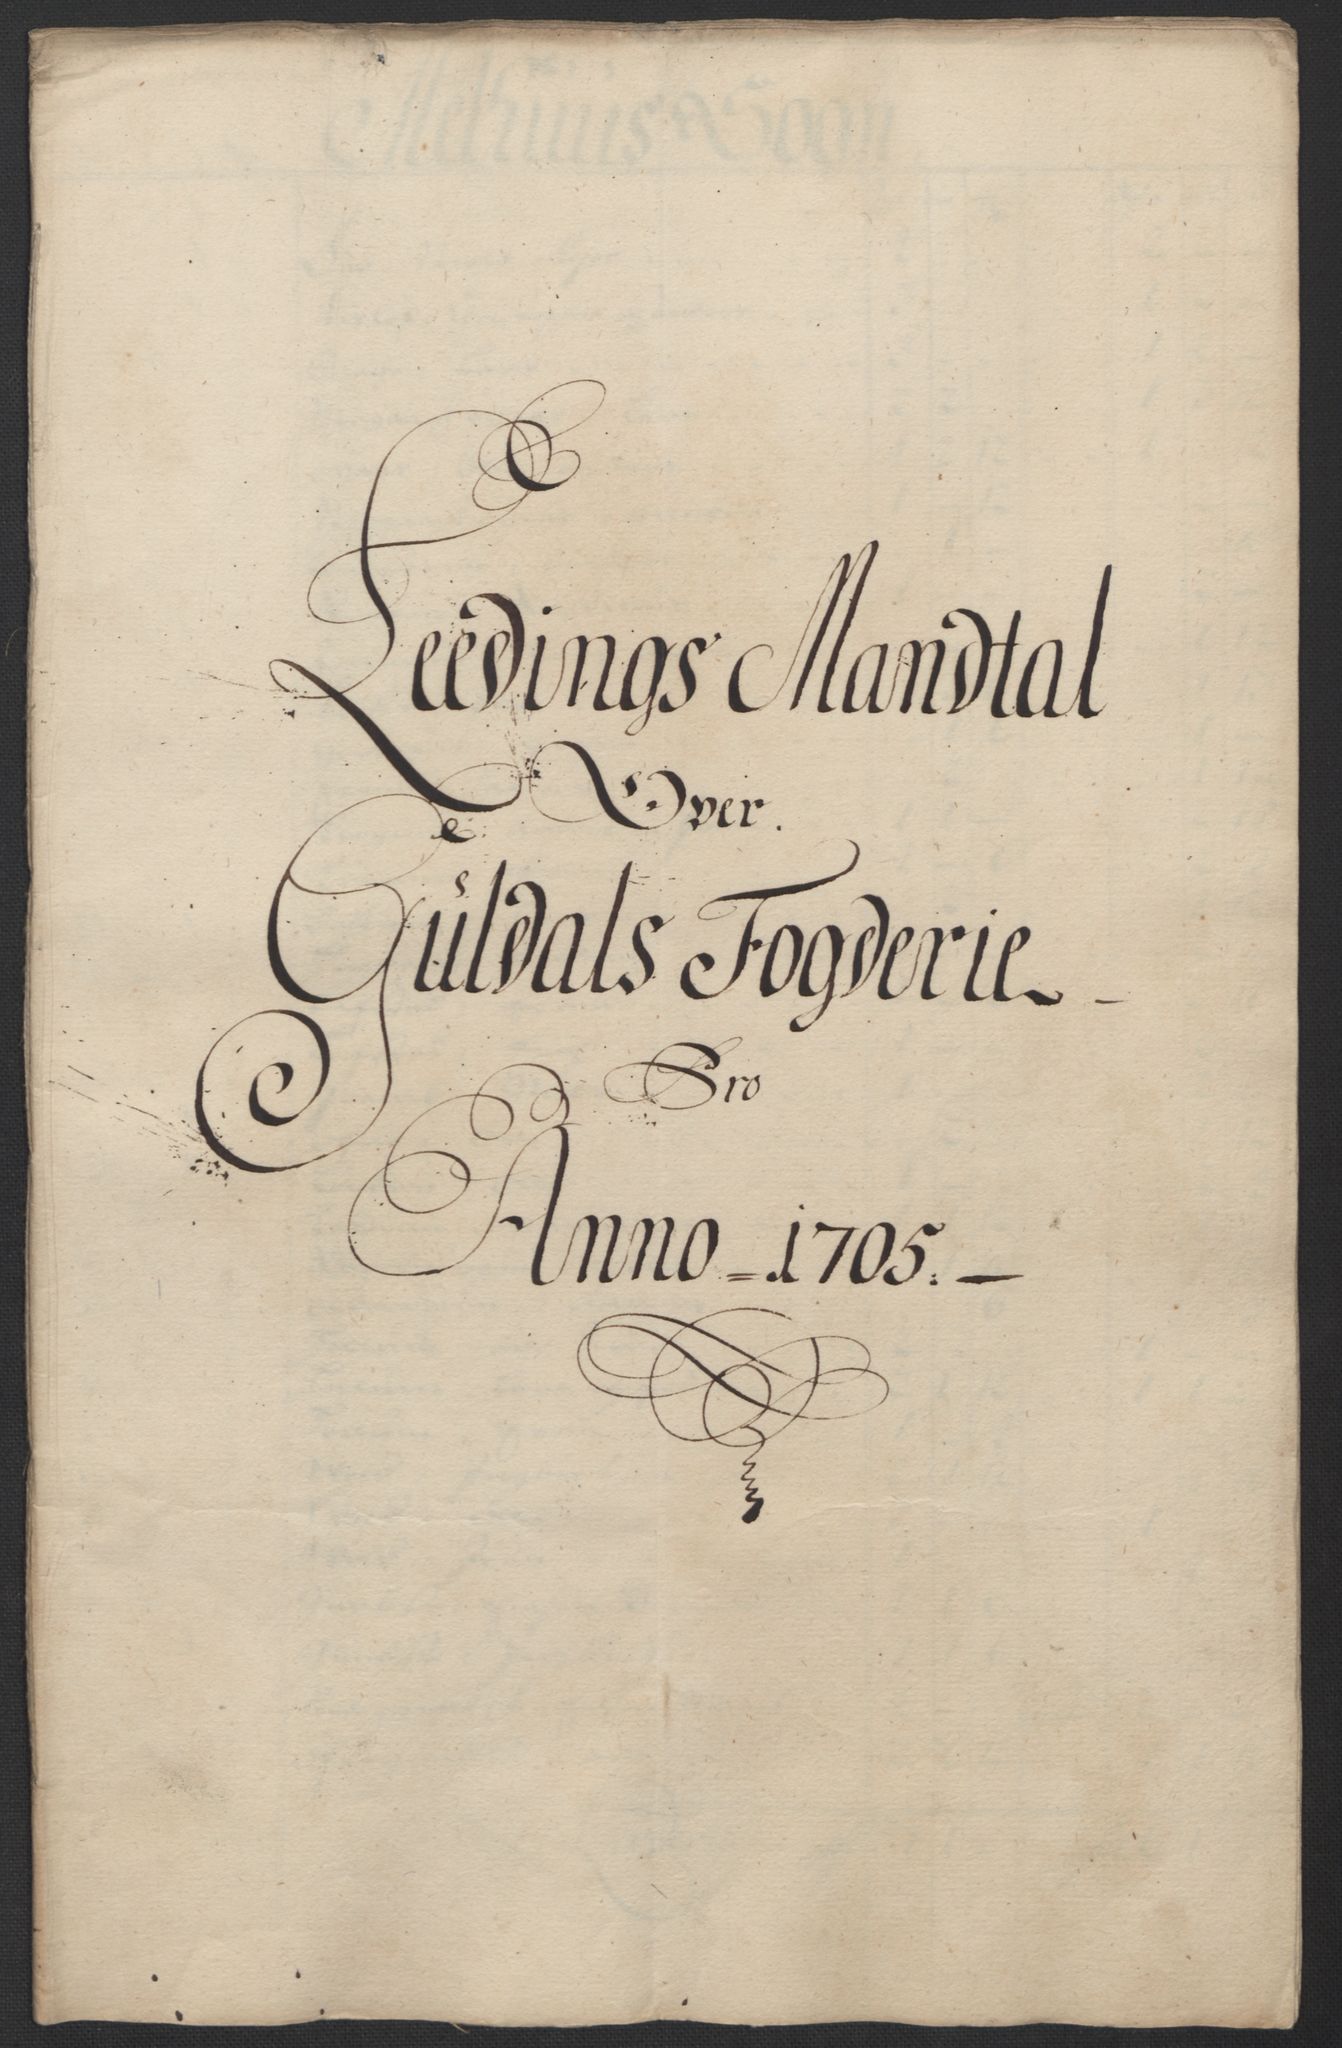 Leedings Mandtal
Over.
Gŭldals Fogderie
Pro
Anno = 1705. —